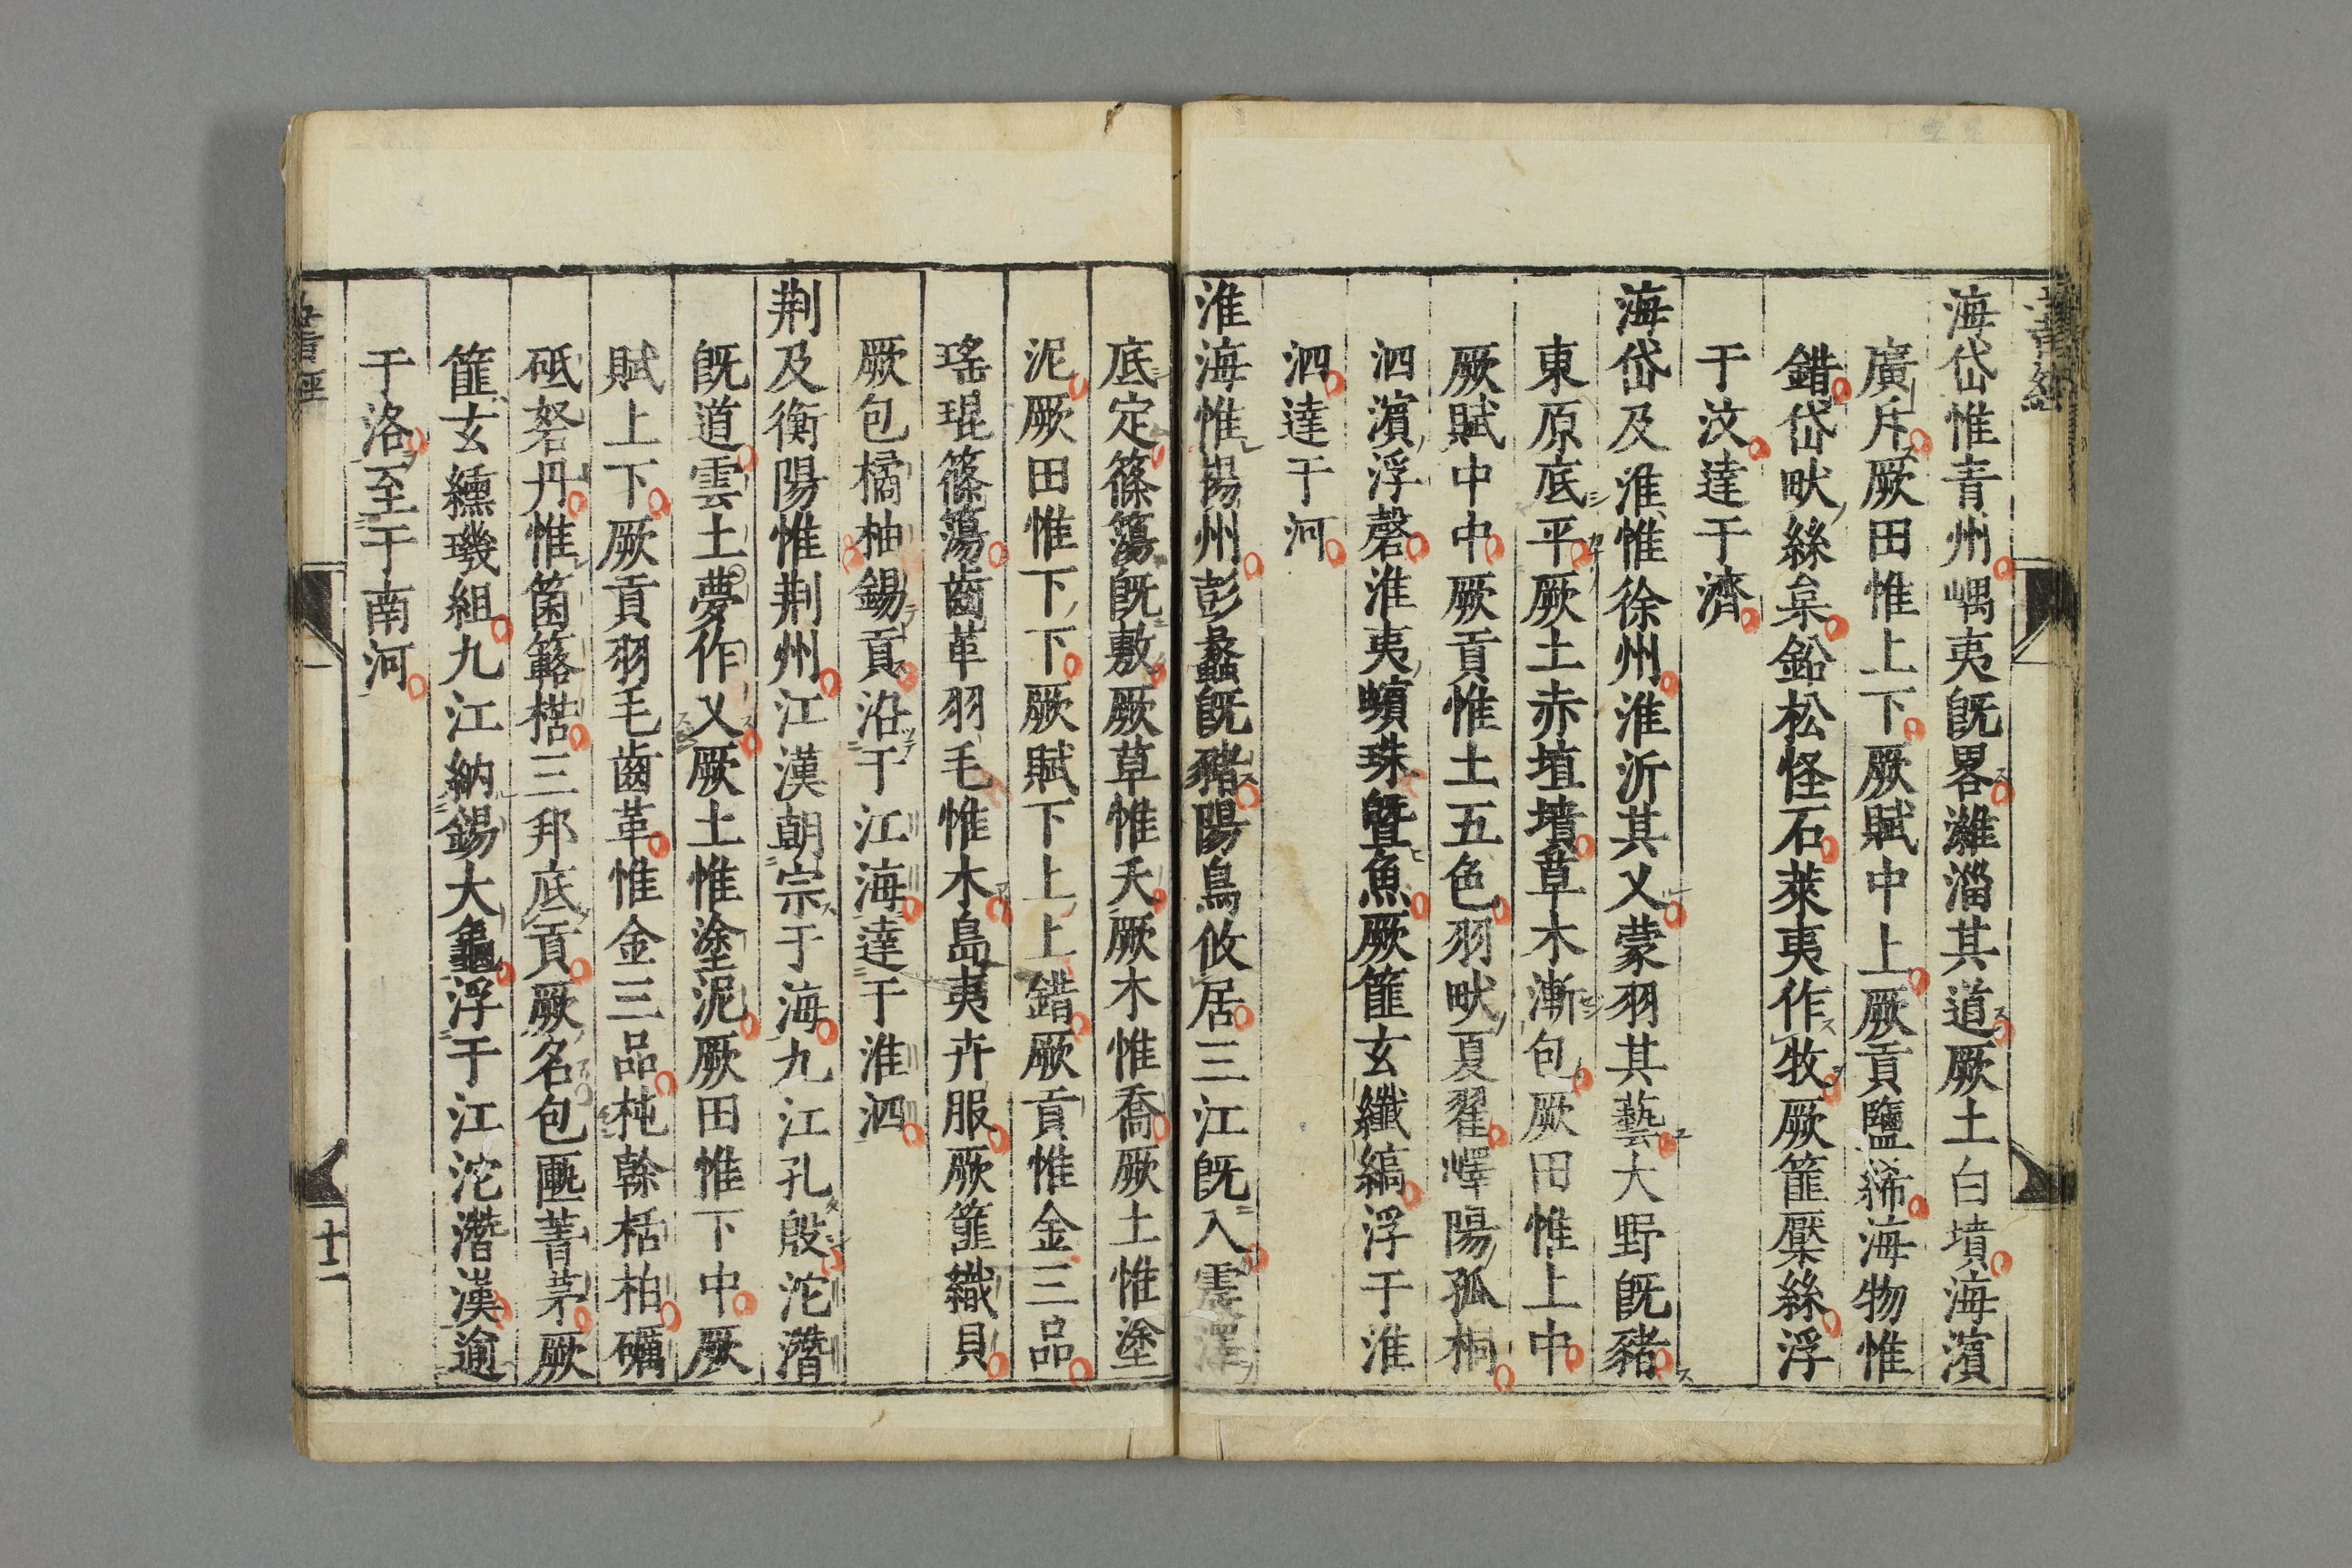 海岱惟青州嵎夷旣畧濰淄其道厥土白墳海濱
廣斥厥田惟上下厥賦中上厥貢鹽絺海物惟
錯岱畎絲枲鉛松怪石萊夷作牧厥篚檿絲浮
于汶達于濟
海岱及淮惟徐州淮沂其乂蒙羽其藝大野旣豬
東原底平厥土赤埴墳草木漸包厥田惟上中
厥賦中中厥貢惟土五色羽畎夏翟嶧陽孤桐
泗濱浮磬淮夷蠙珠曁魚厥篚玄纖縞浮于淮
泗達于河
淮海惟揚州彭蠡旣豬陽鳥攸居三江旣入震澤
底定篠簜旣敷厥草惟夭厥木惟喬厥土惟塗
泥厥田惟下下厥賦下上上錯厥貢惟金三品
瑤琨篠簜齒革羽毛惟木島夷卉服厥篚織貝
厥包橘柚錫貢沿于江海達于淮泗
荆及衡陽惟荆州江漢朝宗于海九江孔殷沱潛
旣道雲土夢作乂厥土惟塗泥厥田惟下中厥
賦上下厥貢羽毛齒革惟金三品杶榦栝柏礪
砥砮丹惟箘簵楛三邦底貢厥名包匭菁茅厥
篚玄纁璣組九江納錫大龜浮于江沱潛漢逾
于洛至于南河
書經
十二